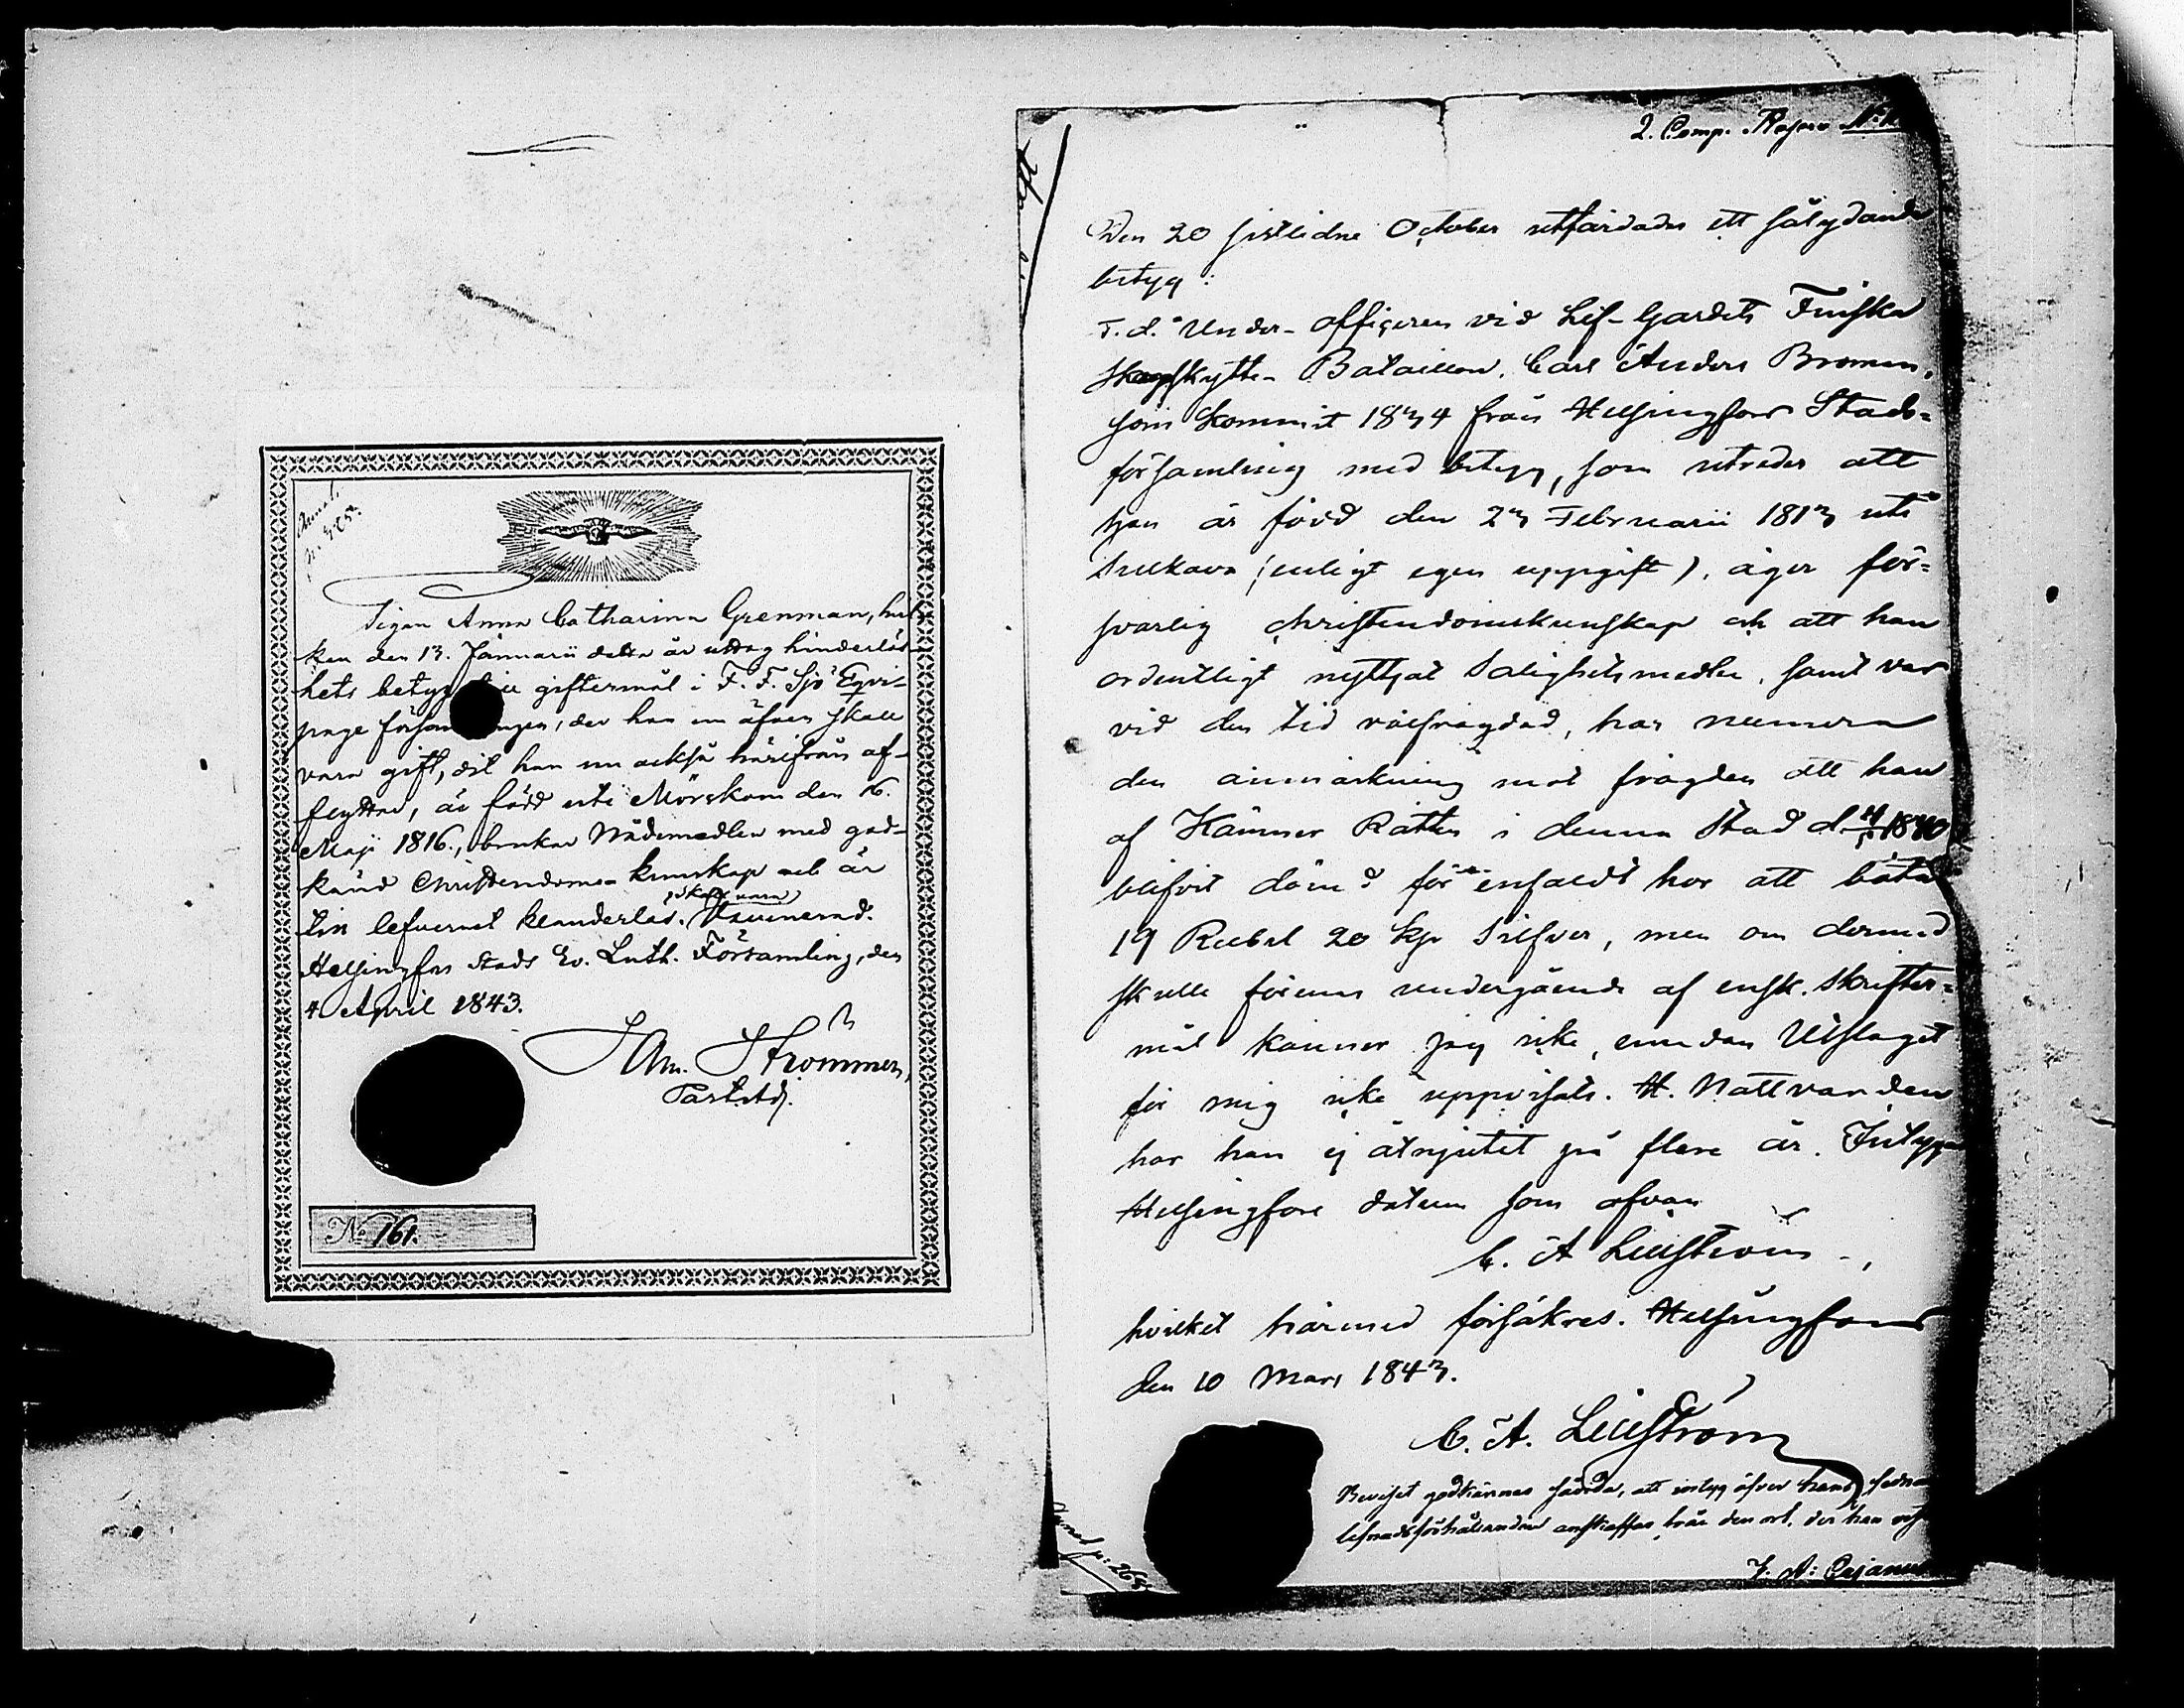 Pigan Anna Catharina Grenman, hvil-
ken den 13. Januarii detta år uttog hinderlös-
hets betyg till giftermål i F. F. Sjö Eqvi-
page församlingen, der hon nu äfven skall
vara gift, dit hon nu också härifrån af-
flyttar, är född uti Mörskom den 16.
Maji 1816., brukar Nådemedlen med god-
känd Christendoms-kunskap och är
till lefvernet klanderlös. (skall vara) Vaccinerad.
Helsingfors Stads Ev. Luth. Församling, den
4 April 1843.
Strommer,
Past. Adj.
No 161.
2. Comp. Reserv No
Den 20 sistlidne October utfärdades ett sålydande
betyg:
F.d. Under-officeren vid Lif-Gardets Finska
Skarpskytte-Bataillon, Carl Anders Broman,
som kommit 1834 från Helsingfors Stads-
församling med betyg, som utreder att
han är född den 23 Februarii 1813 uti
Sulkava (enligt egen uppgift), äger för-
svarlig christendomskunskap och att han
ordentligt nyttjat Salighetsmedlen, samt var
vid den tid välfrägdad, har numera
den anmärkning mot frägden att han
af Kämner Rätten i denna Stad d. 1840
blifvit dömd för enfaldt hor att böta
19 Rubel 20 kop Silfver, men om dermed
skulle förenas undergående af ensk. skrifter-
mål känner jag icke, emedan Utslaget
för mig icke uppvisats. H. Nattvarden
har han ej åtnjutit på flere år. Intygar
Helsingfors datum som ofvan
C. A Lillström
hvilket härmed försäkras. Helsingfors
den 10 Mars 1843.
C. A. Lillström
Beviset godkännes såvida, att intyg öfver hans sednare
lefnadsförhållanden anskaffas från den ort, der han